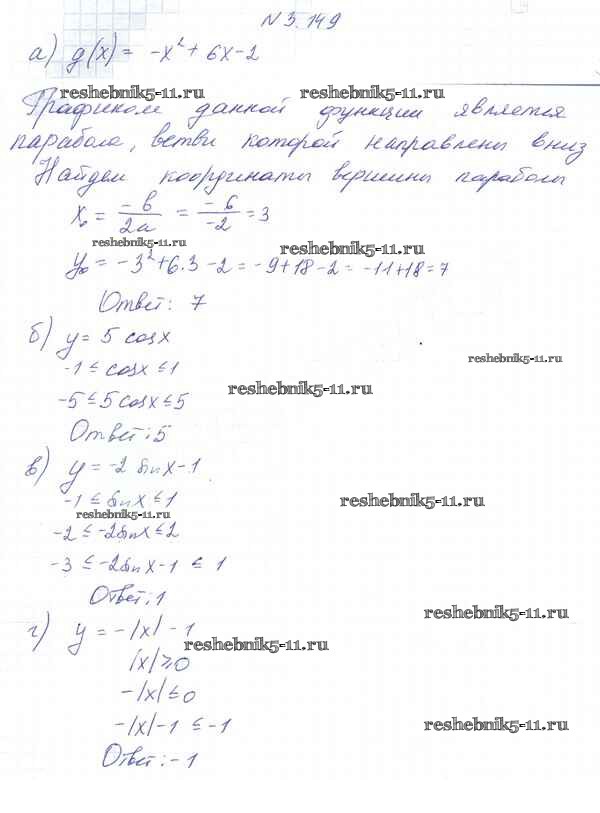 N 3.149
а) g(x) = -x² + 6x - 2
reshebnik5-11.ru reshebnik5-11.ru
Графиком данной функции является
парабола, ветви которой направлены вниз
Найдем координаты вершины параболы
x₀ = -b/2a = -6/-2 = 3
reshebnik5-11.ru reshebnik5-11.ru
y₀ = -3² + 6·3 - 2 = -9 + 18 - 2 = -11 + 18 = 7
Ответ: 7
б) y = 5 cosx
reshebnik5-11.ru
-1 ≤ cosx ≤ 1
reshebnik5-11.ru
-5 ≤ 5cosx ≤ 5
Ответ: 5
в) y = -2 sinx - 1
-1 ≤ sinx ≤ 1
reshebnik5-11.ru reshebnik5-11.ru
-2 ≤ -2sinx ≤ 2
-3 ≤ -2sinx - 1 ≤ 1
Ответ: 1
reshebnik5-11.ru
г) y = -|x| - 1
reshebnik5-11.ru
|x| ≥ 0
-|x| ≤ 0
-|x| - 1 ≤ -1
reshebnik5-11.ru
Ответ: -1